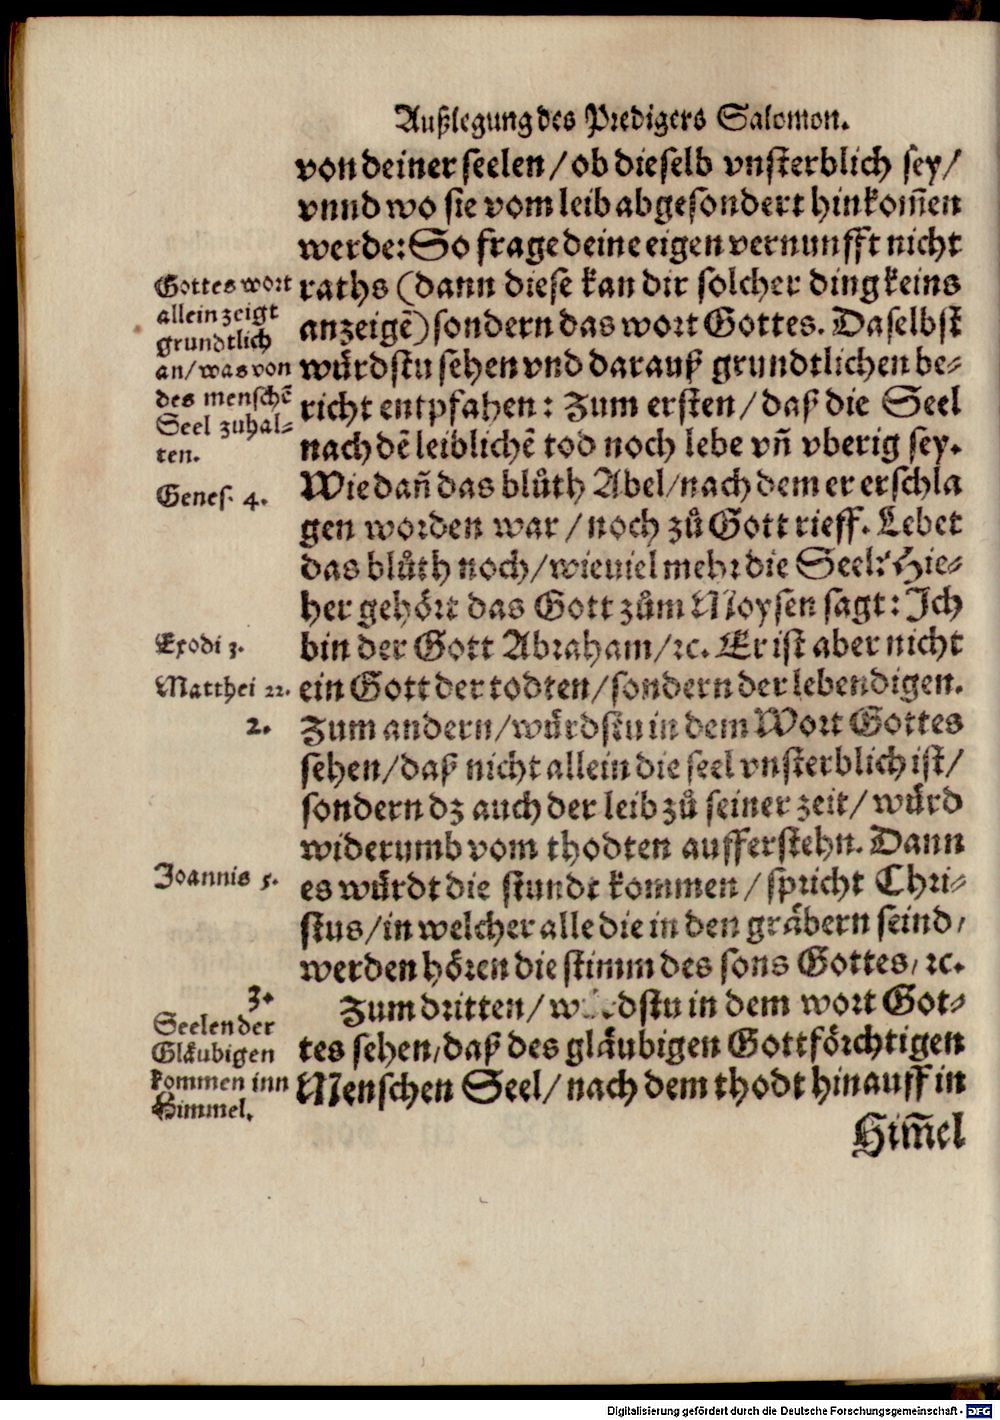 Außlegung des Predigers Salomon.
von deiner seelen / ob dieselb vnsterblich sey /
vnnd wo sie vom leib abgesondert hinkom̃en
werde: So frage deine eigen vernunfft nicht
raths (dann diese kan dir solcher ding keins
anzeigẽ) sondern das wort Gottes. Daselbst
wuͤrdstu sehen vnd darauß grundtlichen be⸗
richt entpfahen: Zum ersten / daß die Seel
nach dẽ leiblichẽ tod noch lebe vñ vberig sey.
Wie dañ das bluͦth Abel / nach dem er erschla
gen worden war / noch zuͦ Gott rieff. Lebet
das bluͦth noch / wieuiel mehr die Seel? Hie⸗
her gehoͤrt das Gott zuͦm Moysen sagt: Ich
bin der Gott Abraham / ꝛc. Er ist aber nicht
ein Gott der todten / sondern der lebendigen.
Zum andern / wuͤrdstu in dem Wort Gottes
sehen / daß nicht allein die seel vnsterblich ist /
sondern dz auch der leib zuͦ seiner zeit / wuͤrd
widerumb vom thodten aufferstehn. Dann
es wuͤrdt die stundt kommen / spricht Chri⸗
stus / in welcher alle die in den graͤbern seind /
werden hoͤren die stimm des sons Gottes, ꝛc.
Zum dritten / w dstu in dem wort Got⸗
tes sehen, daß des glaͤubigen Gottfoͤrchtigen
Menschen Seel / nach dem thodt hinauff in
Him̃el
Gottes wort
allein zeigt
grundtlich
an / was von
des menschẽ
Seel zuhal⸗
ten.
Genes. 4.
Exodi 3.
Matthei 22.
2.
Joannis 5.
3.
Seelen der
Glaͤubigen
kommen inn
Himmel.
Digitalisierung gefördert durch die Deutsche Forschungsgemeinschaft - DFG